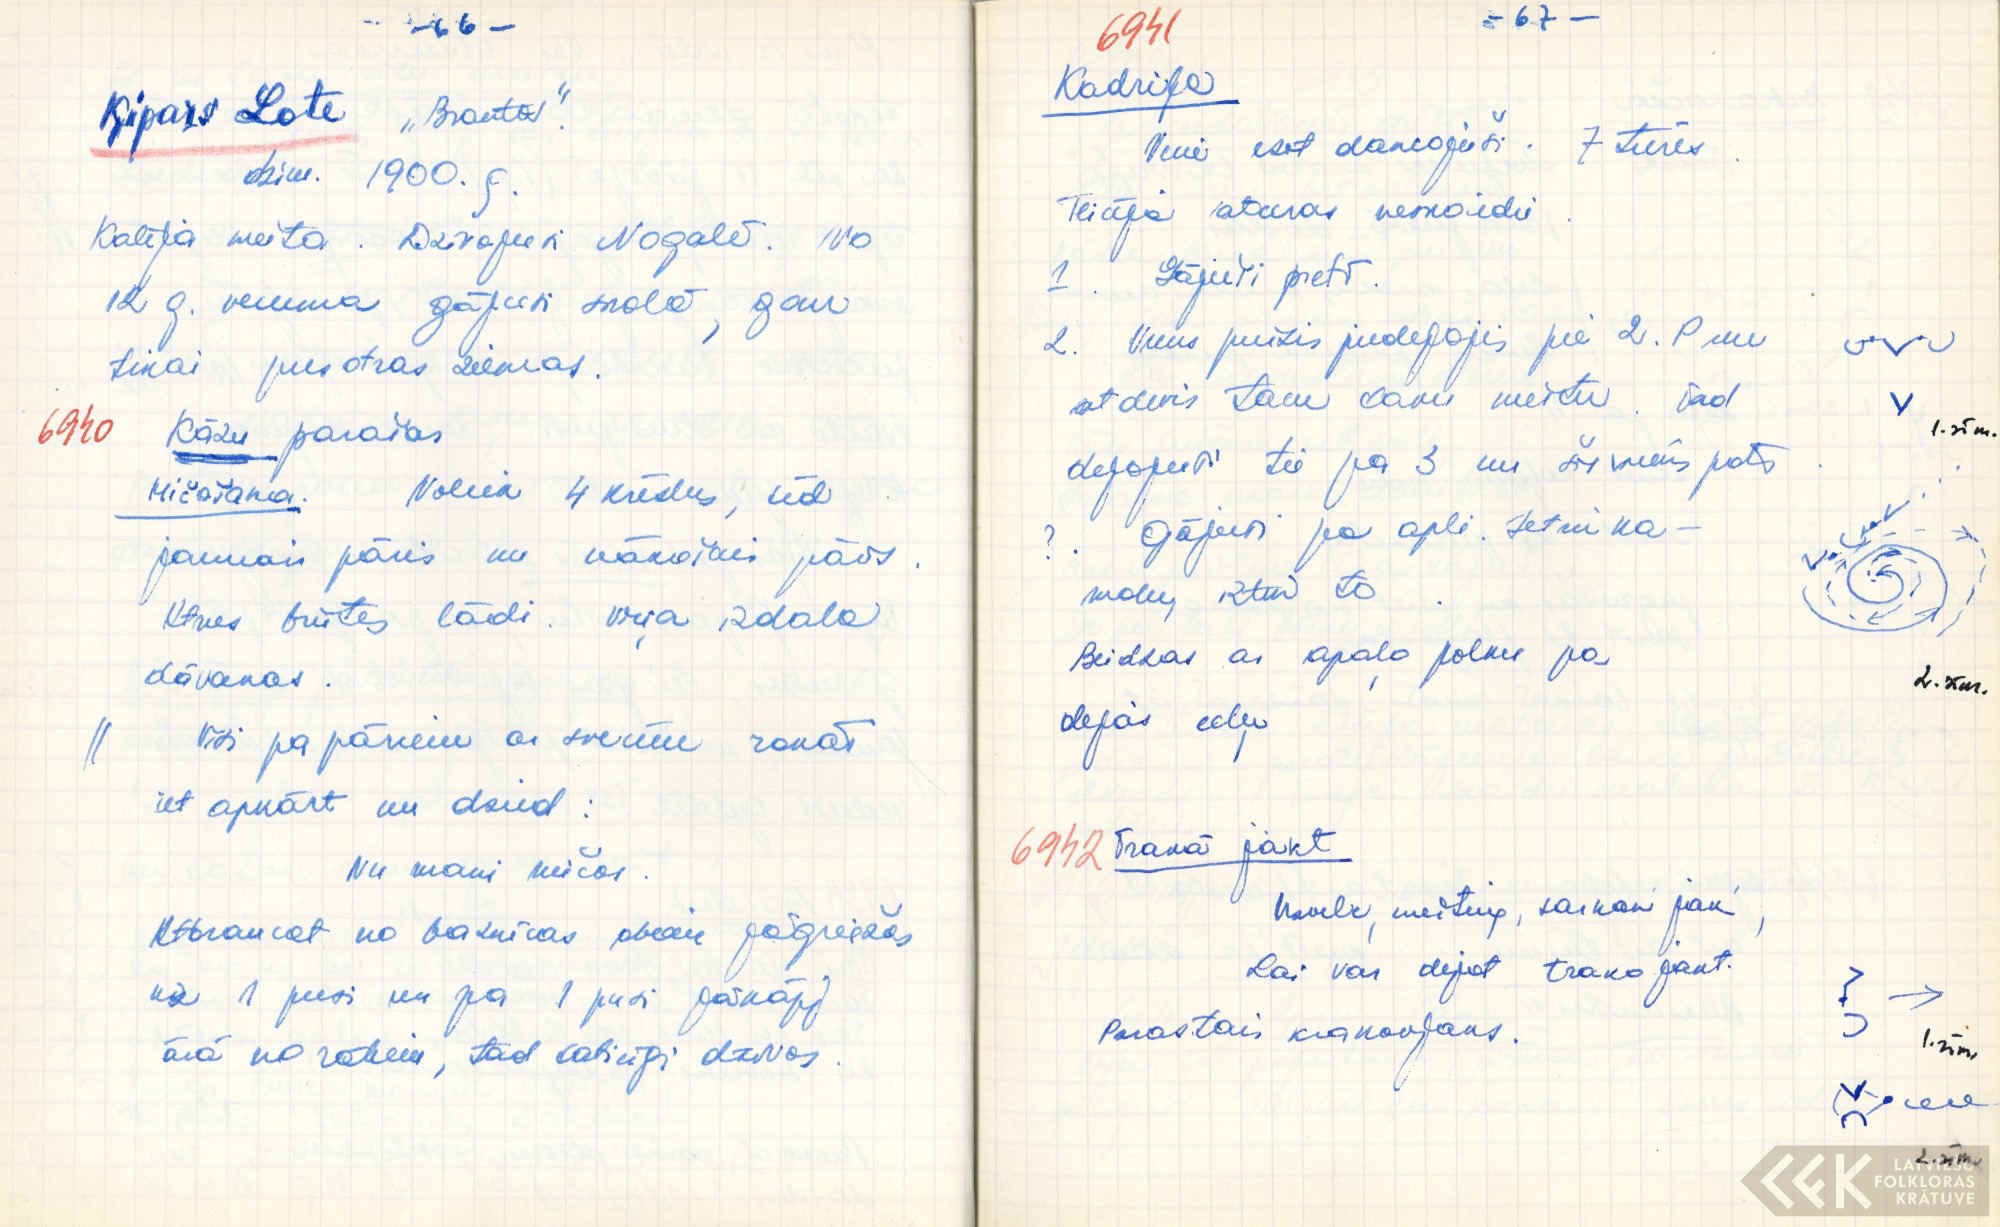 - 66 -
Ķipars Lote "Brantos".
dzim. 1900. g.
Kalēja meita. Dzīvojusi Nogalē. No
12 g. vecuma gājusi skolā, gan
tikai pusotras ziemas.
6940 Kāzu parašas
Mičošana. Noliek 4 krēslus, sēd
jaunais pāris un nākošais pāris.
Atnes brūtes lādi. Viņa izdala
dāvanas.
// Visi pa pāriem ar svecēm rokās
iet apkārt un dzied:
Nu mani mičos.
Atbraucot no baznīcas abiem jāgriežas
uz 1 pusi un pa 1 pusi jāizkāpj
ārā no ratiem, tad satiecīgi dzīvos.
- 67 -
6941
Kadriļa
Vecie esot dancojuši. 7 tūres.
Teicēja atceras neskaidri.
1. Gājuši pretī.
2. Viens puisis piedejojis pie 2. P un
atdevis tam savu meitu. Tad
dejojuši tie pa 3 un šis viens pats.
1. zīm.
?. Gājuši pa apli.
moku, iztin to.
2. zīm.
Beidzas ar apaļo polku pa
dejas ceļu
6942 Trakā jakt
meitiņ, sarkani jak,
Lai var dejot trako jakt.
Parastais krakovjaks.
1. zīm.
2. zīm.
LATVIEŠU
FOLKLORAS
KRĀTUVE